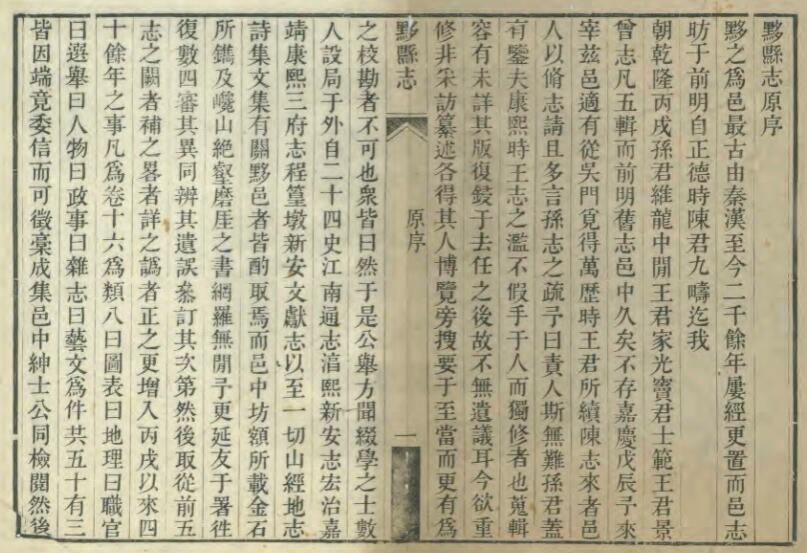 黟縣志原序
黟之爲邑最古由秦漢至今二千餘年屢經更置而邑志
昉于前明自正德時陳君九疇迄我
朝乾隆丙戌孫君維龍中閒王君家光竇君士範王君景
曾志凡五輯而前明舊志邑中久矣不存嘉慶戊辰予來
宰兹邑適有從吳門覓得萬歷時王君所續陳志來者邑
人以脩志請且多言孫志之疏予曰責人斯無難孫君蓋
有鑒夫康熙時王志之濫不假手于人而獨修者也蒐輯
容有未詳其版復鋟于去任之後故不無遺議耳今欲重
修非采訪纂述各得其人博覽旁搜要于至當而更有爲
黟縣志
原序
一
之校勘者不可也衆皆曰然于是公舉方聞綴學之士數
人設局于外自二十四史江南通志淯熙新安志宏治嘉
靖康熙三府志程篁墩新安文獻志以至一切山經地志
詩集文集有關黟邑者皆酌取焉而邑中坊額所載金石
所鐫及巉山絶壑磨厓之書網羅無閒予更延友于署徃
復數四審其異同辨其遺誤叅訂其次第然後取從前五
志之闕者補之畧者詳之譌者正之更增入丙戌以來四
十餘年之事凡爲卷十六爲類八曰圖表曰地理曰職官
曰選舉曰人物曰政事曰雜志曰藝文爲件共五十有三
皆因端竟委信而可徵稾成集邑中紳士公同檢閱然後